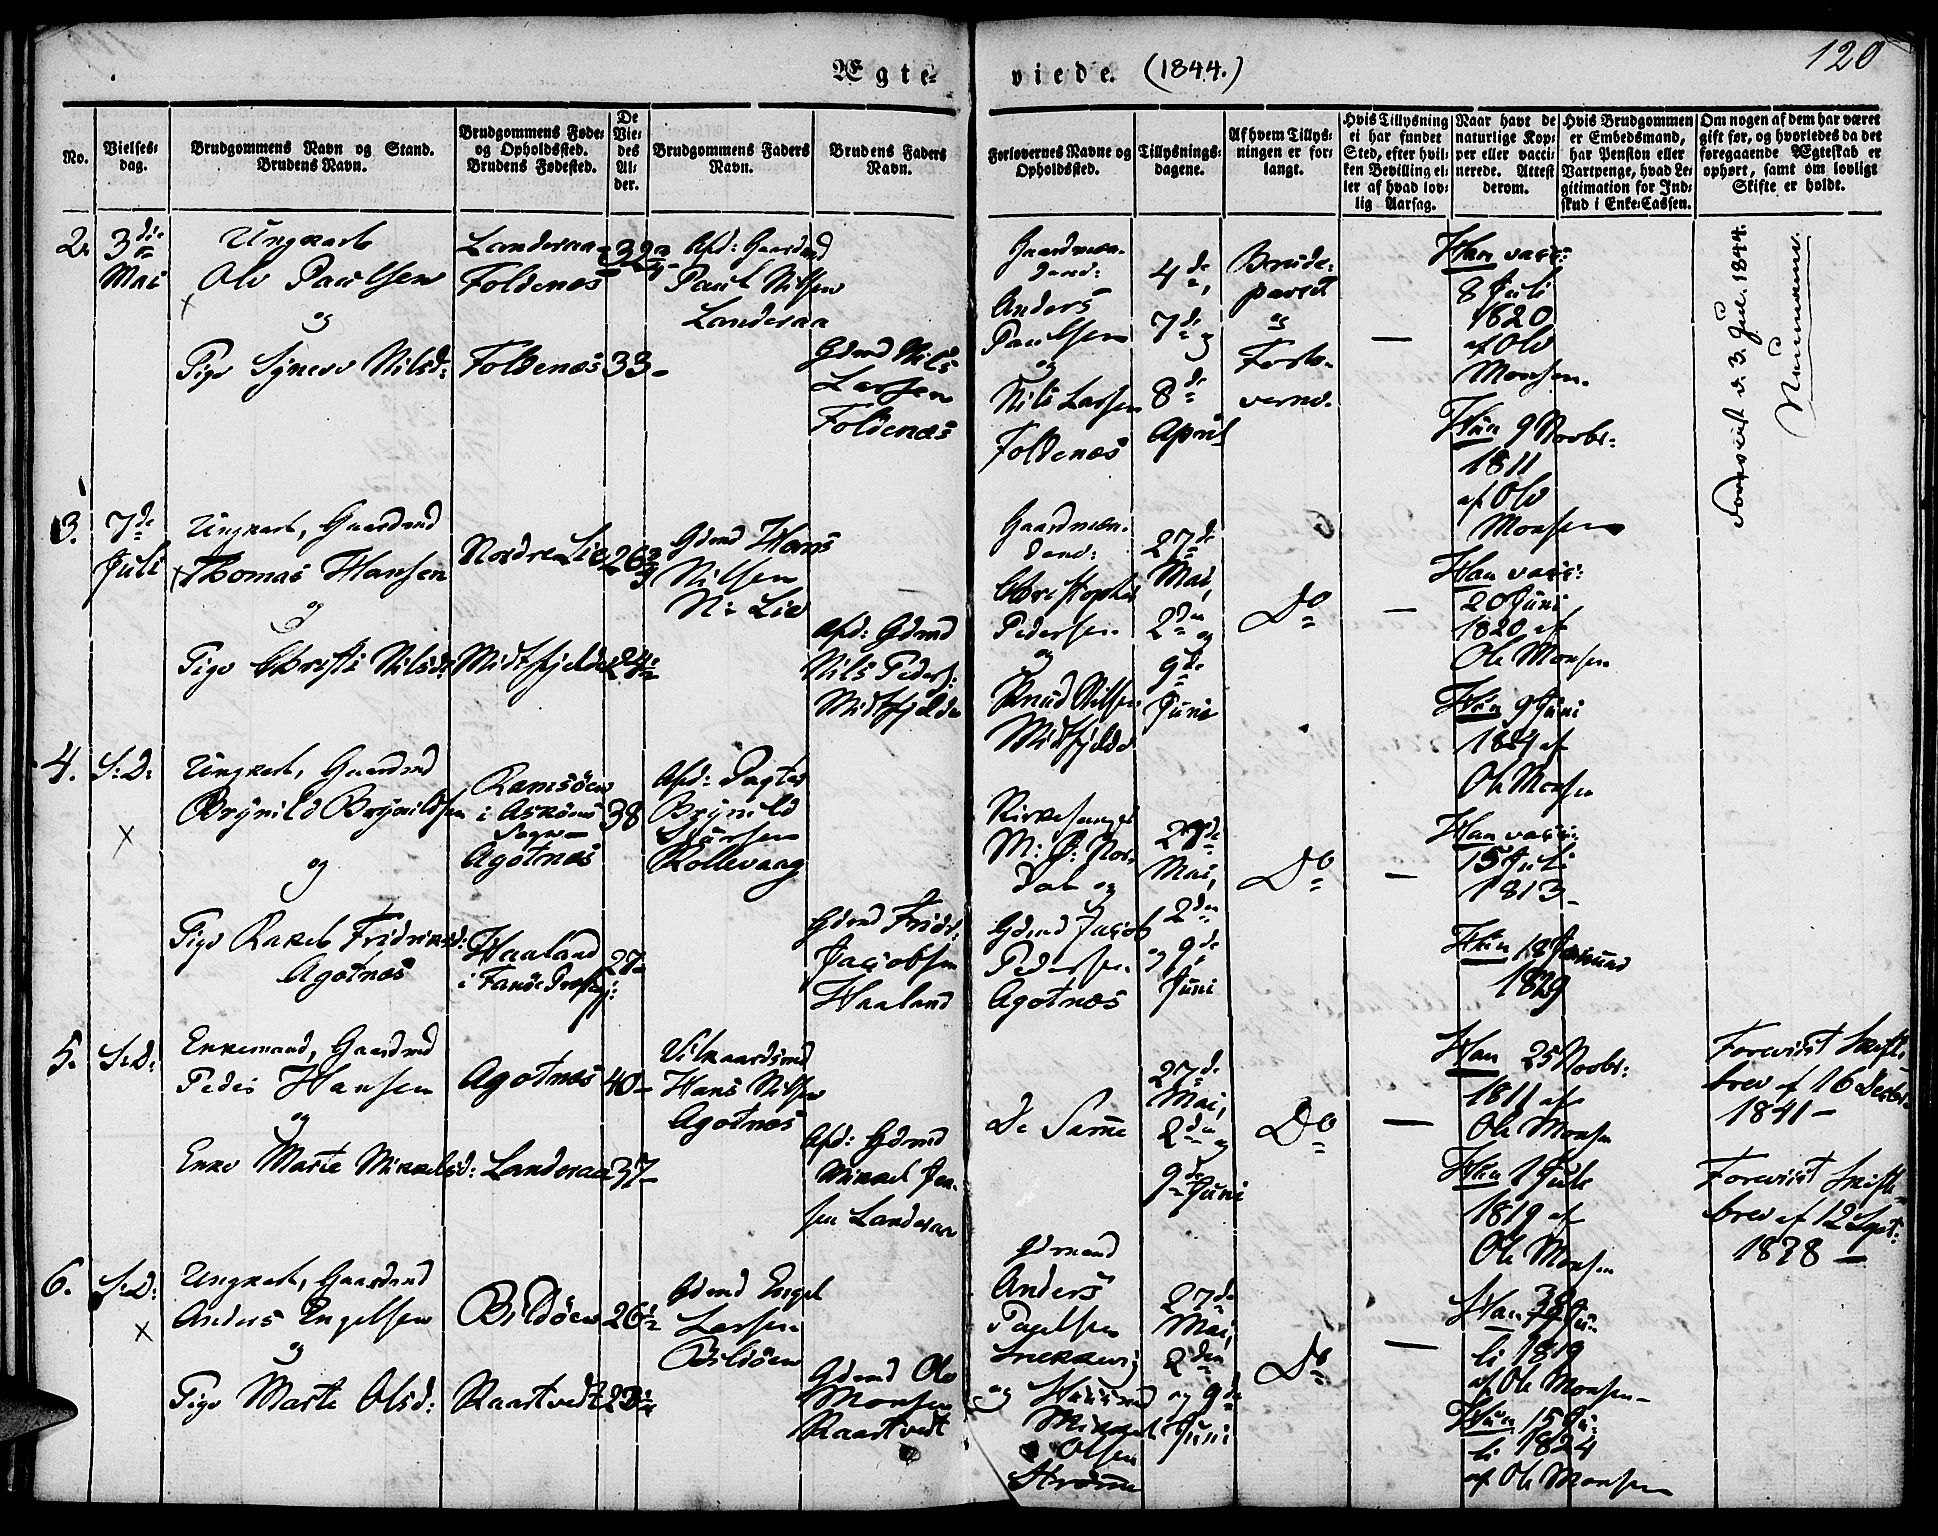 120
Ægte-
viede. (1844.)
No.
Vielses-
dag.
Brudgommens Navn og Stand.
Brudens Navn.
Brudgommens Føde-
og Opholdssted.
Brudens Fødested.
De
Vie-
des
Al-
der.
Brudgommens Faders
Navn.
Brudens Faders
Navn.
Forlovernes Navne og
Opholdssted.
Tillysnings-
dagene.
Af hvem Tillys-
ningen er for-
langt.
Hvis Tillysning
ei har fundet
Sted, efter hvil-
ken Bevilling el-
ler af hvad lov-
lig Aarsag.
Naar havt de
naturlige Kop-
per eller vacci-
nerede. Attest
derom.
Hvis Brudgommen
er Embedsmand,
har Pension eller
Vartpenge, hvad Le-
gitimation for Ind-
skud i Enke-Cassen.
Om nogen af dem har været
gift før, og hvorledes da det
foregaaende Ægteskab er
ophørt, samt om lovligt
Skifte er holdt.
2.
3die
Mai
Ungkarl
Ole Paulsen
og
Pige Syneve Nilsd:
Landeraa
Foldenæs
Foldenæs
32
33
Afd: Gaardmd
Paul Nilsen
Landeraa
Gdmd Nils
Larsen
Foldenæs
Gaardmæn-
dene:
Anders
Paulsen
og
Nils Larsen
Foldenæs
4de,
7de og
8de
April
Brude-
parret
og
Forlo-
verne.
—
Han vacc:
8 Juli
1820
af Ole
Monsen.
Hun 9 Novbr:
1811
af Ole
Monsen
d. 3. Jul. 1844.
3.
7de
Juli
Ungkarl, Gaardmd
Thomas Hansen
og
Pige Christi Nilsd:
Nordre Lie
Midtfjelde
26
24
Gdmd Hans
Nilsen
N: Lie
Afd: Gdmd
Nils Peders:
Midtfjelde
Gaardmæn-
dene:
Christopher
Pedersen
og
Knud Nilsen
Midtfjelde
27de
Mai,
2den og
9de
Juni
Do
—
Han vacc:
20 Juni
1820 af
Ole Monsen
Hun 9 Juni
af
Ole Monsen
4.
S: D:
Ungkarl, Gaardmd
Brynild Brynildsen
og
Pige Rakel Fridriksd:
Agotnæs
Ramsöen
i Asköens
Sogn
Agotnæs
Haaland
i Fanöe Præstgj:
38
27
Afd:
Brynild
Rollevaag
Gdmd Fridr:
Jacobsen
Haaland
Kirkesanger
M: Nor-
dal og
Gdmd Jacob
Pedersen
Agotnæs
27de
Mai,
2den
og 9de
Juni
Do
—
Han vacc:
15 Juli
1813
Hun 18
1829
5.
S: D:
Enkemand, Gaardmd
Peder Hansen
og
Enke Marte Mikkelsd:
Agotnæs
Landeraa
40
37
Vilkaardsmd
Hans Nilsen
Agotnæs
Afd: Gdmd
Mikkel Jen-
sen Landeraa
De Samme
27de
Mai,
2den og
9de Juni
Do
—
Han 25 Novbr:
1811 af
Ole Monsen
Hun 1 Juli
1819 af
Ole Monsen
Foreviist Skifte-
brev af 16 Decbr.
1841 —
Foreviist Skifte-
brev af 12 Sept:
—
6.
S: D:
Ungkarl, Gaardmd
Anders Engelsen
og
Pige Marte Olsd:
Bildöen
Raartvedt
26
Gdmd Engel
Larsen
Bildöen
Gdmd Ole
Monsen
Raartvedt
Gdmand
Anders
Paulsen
Snekkevig
og Huusmd
Mikkel
Olsen
Stromme
27de
Mai,
2den
og 9de
Juni
Do
—
Han Ju-
li 1819
af Ole Monsen
Hun 15 Ju-
li 1824
af Ole Monsen